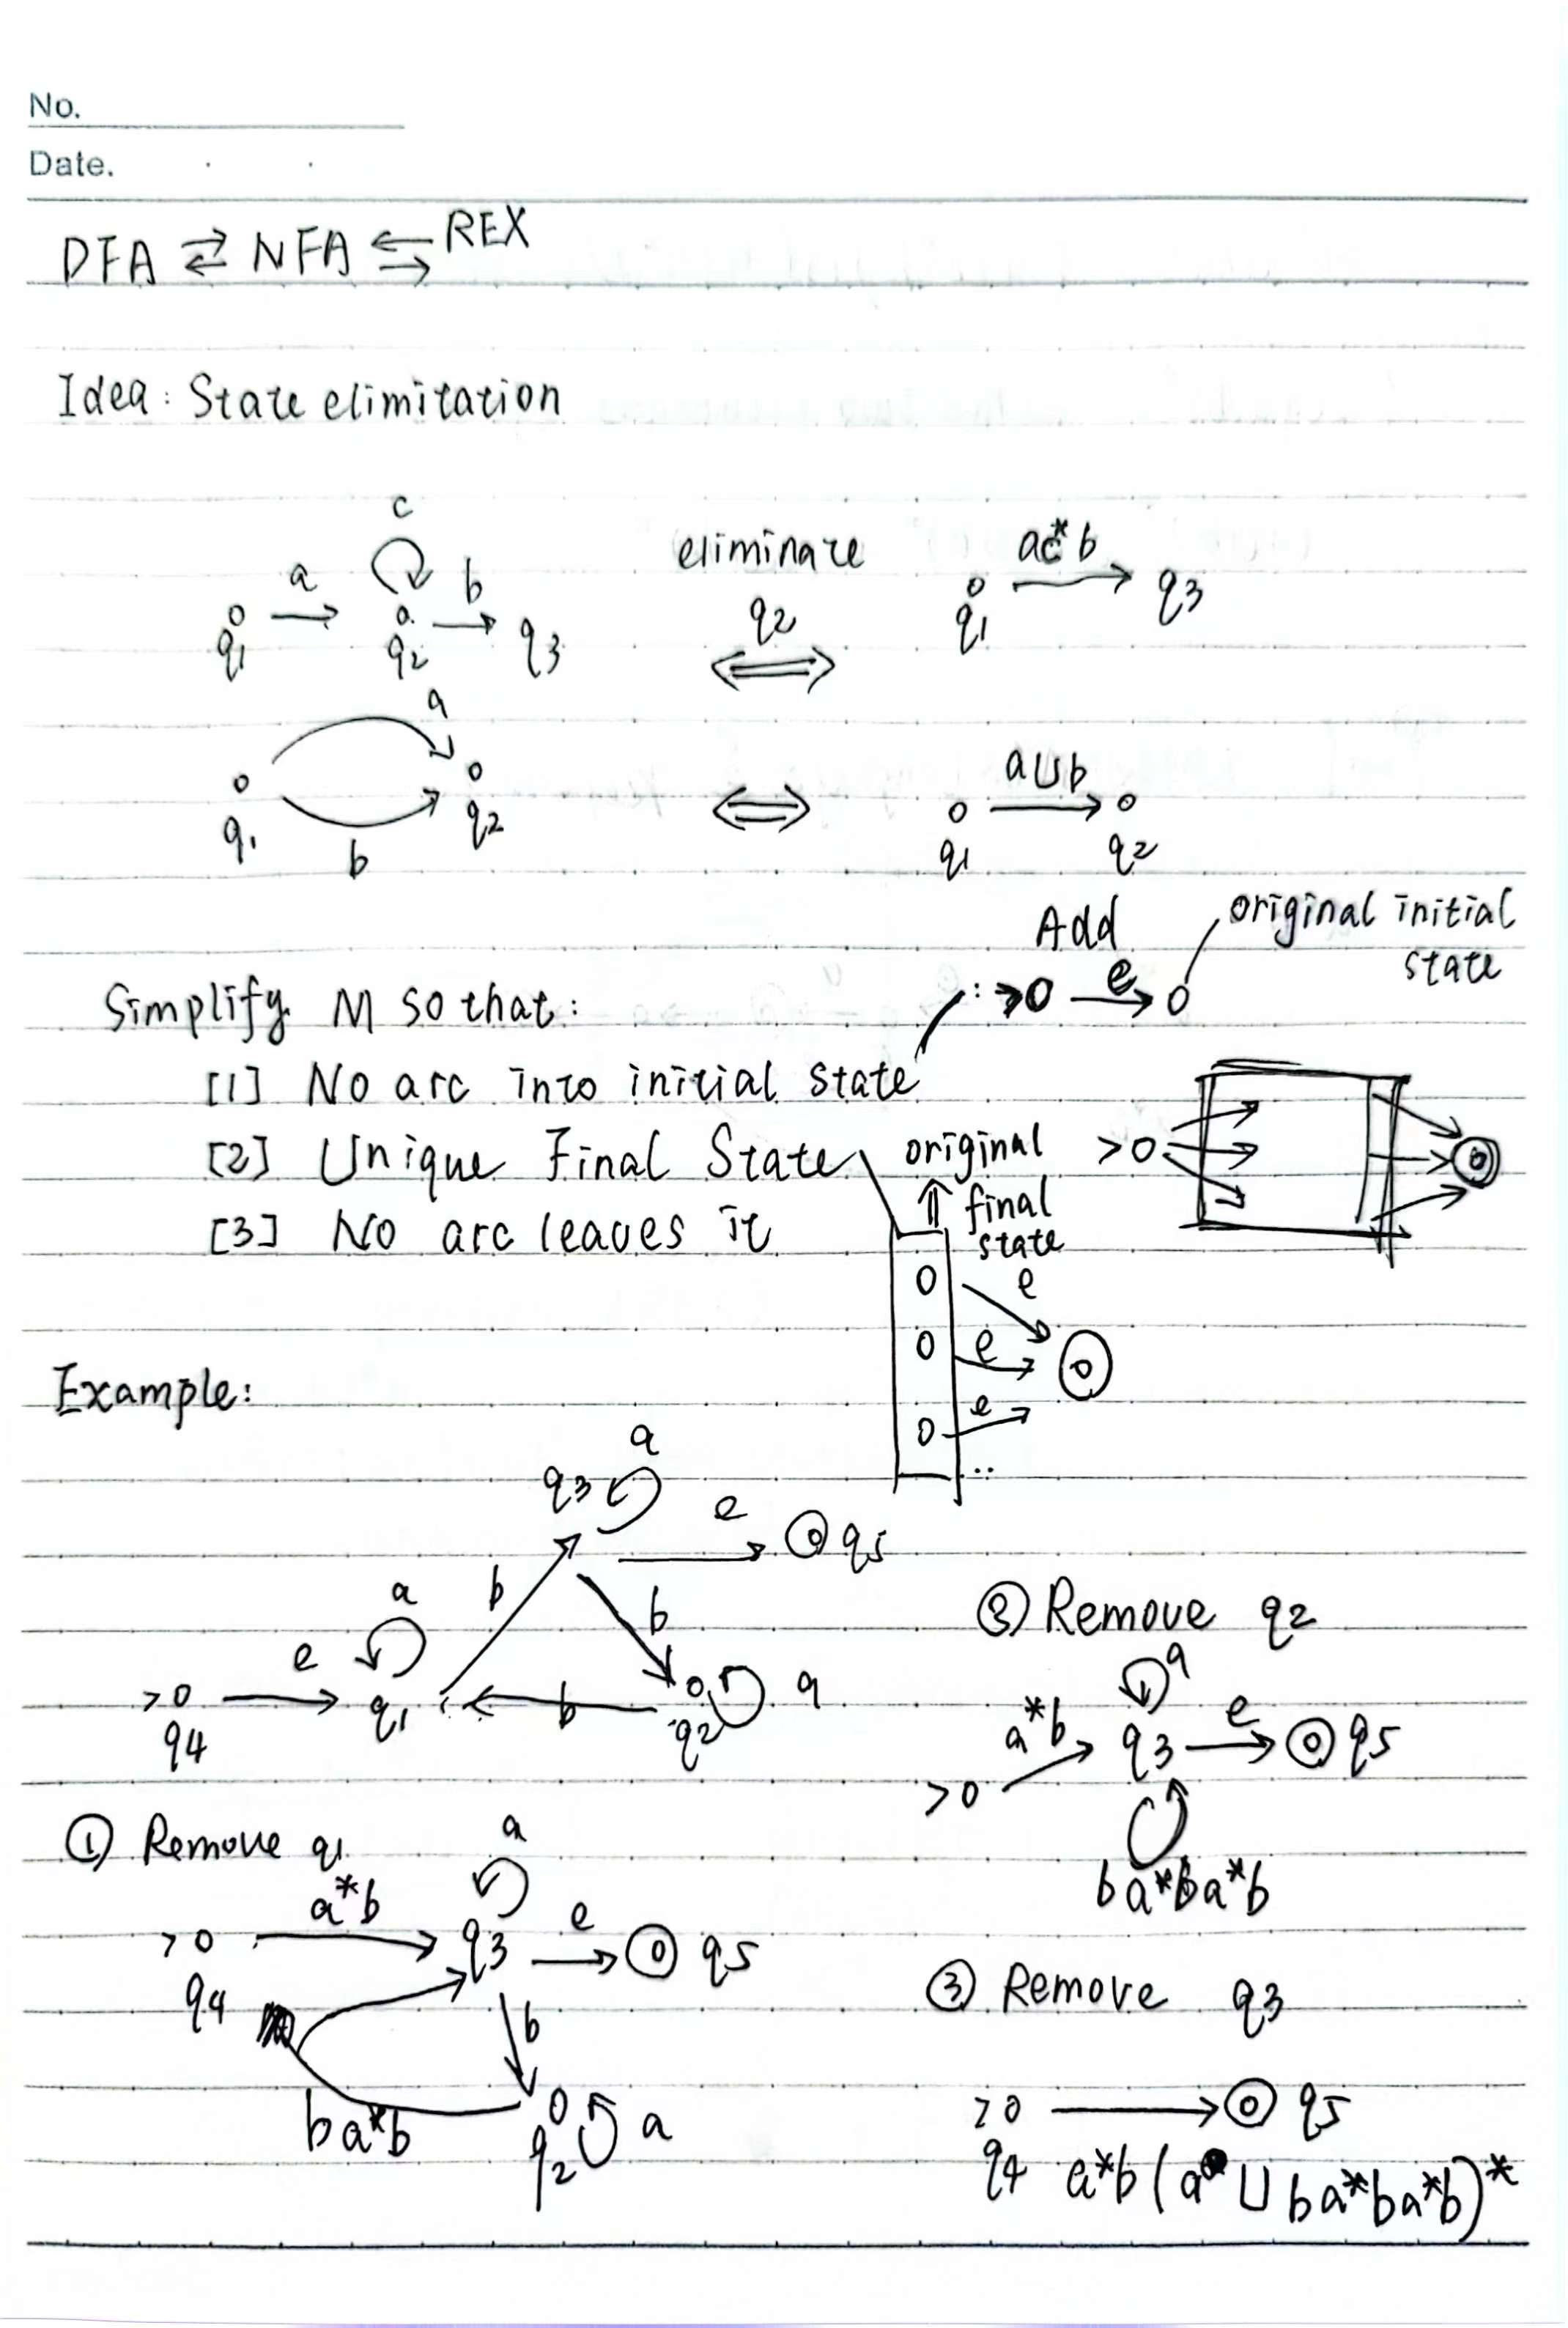 No.
Date.
DFA ⇄ NFA ⇆ REX
Idea: State elimitation
c
a b
q1 q2 q3
eliminate
q2
ac*b
q1 q3
a
q1 q2
b
a∪b
q1 q2
Add
original initial
state
e
Simplify M so that:
[1] No arc into initial state
[2] Unique Final State
[3] No arc leaves it
original
final
state
e
e
e
Example:
a
q3
e
q5
b b
a
e
>o
q4 q1 b q2 a
① Remove q1
a
a*b e
>o q3 q5
q4
b
ba*b q2 a
② Remove q2
a
a*b q3 e q5
>o
ba*ba*b
③ Remove q3
>o q5
q4 a*b(a ∪ ba*ba*b)*